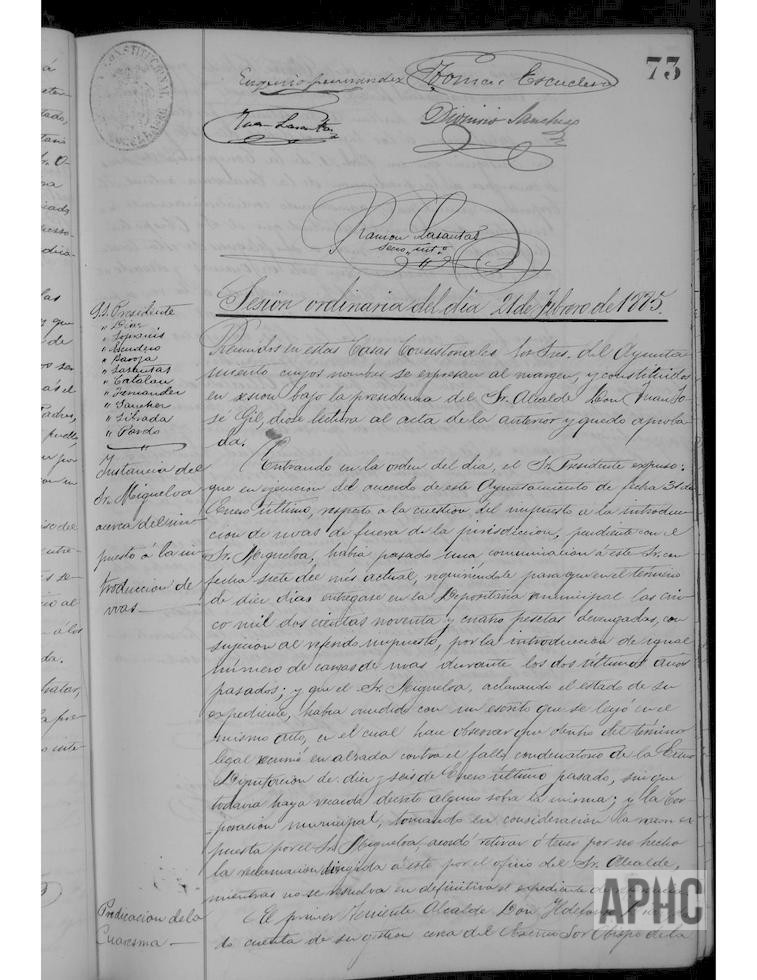 CONSTITUCIONAL
73
Eugenio Fernandez Thomas Escudero
Juan Lasanta Dionisio Sanchez
Ramon Lasantas
Secro. int.o
Sesion ordinaria del dia 21 de Febrero de 1885.
S.S. Presidente
" Diez
" Sopranis
" Escudero
" Baroja
" Lasantas
" Catalan
" Fernandez
" Sanchez
" Silvada
" Pardo
Reunidos en estas Casas Consistoriales los Sres. del Ayunta-
miento cuyos nombres se expresan al margen, y constituidos
en sesion bajo la presidencia del Sr. Alcalde Don Juan Jo-
sé Gil, diose lectura al acta de la anterior y quedó aproba-
da.
Instancia del
Sr. Migueloa
acerca del im-
puesto á la in-
troduccion de
uvas
Entrando en la orden del dia, el Sr. Presidente expuso:
que en ejecucion del acuerdo de este Ayuntamiento de fecha 31 de
Enero último, respecto a la cuestion del impuesto á la introduc-
cion de uvas de fuera de la jurisdiccion, pendiente con el
Sr. Migueloa, habia pasado una comunicacion á este Sr. con
fecha siete del mes actual, requiriendole para que en el término
de diez dias entregase en la Depositaria municipal las cin-
co mil dos cientas noventa y cuatro pesetas devengadas, con
sujecion al referido impuesto, por la introduccion de igual
número de cargas de uvas durante los dos últimos años
pasados; y que el Sr. Migueloa, aclarando el estado de su
expediente, habia acudido con un escrito que se leyó en el
mismo acto, en el cual hace observar que dentro del término
legal recurrió en alzada contra el fallo condenatorio de la Excma
Diputacion de diez y seis de Enero último pasado, sin que
todavia haya recaido decreto alguno sobre la misma; y la Cor-
poracion municipal, tomando en consideracion la razon ex-
puesta por el Sr. Migueloa, acordó retirar ó tener por no hecha
la reclamacion dirigida á este por el oficio del Sr. Alcalde,
mientras no se resuelva en definitiva el expediente de
Predicacion de la
Cuaresma
El primer Teniente Alcalde Don Ildefonso
do cuenta de su gestion cerca del Excmo Sor Obispo de la
APHC